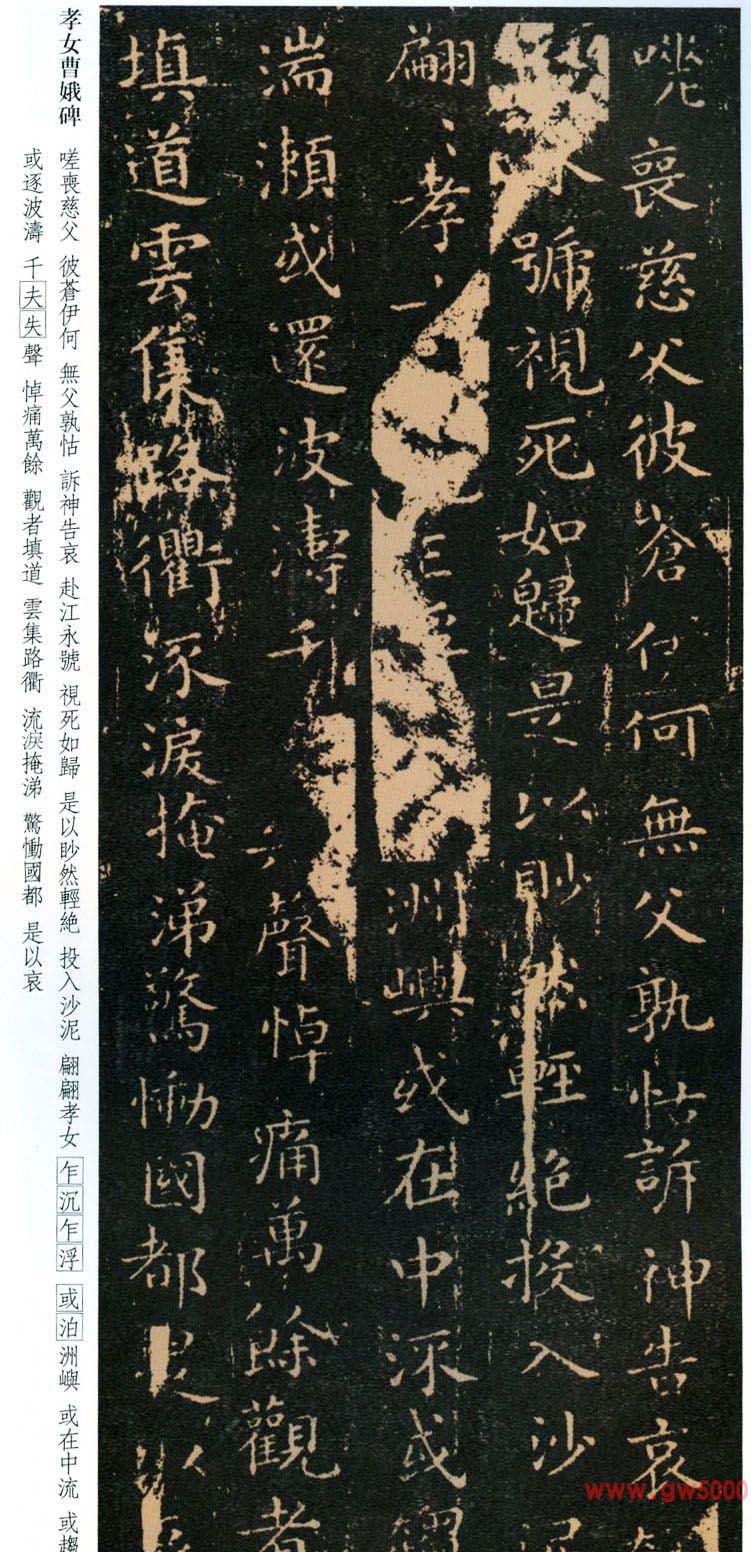 嗟喪慈父彼蒼伊何無父孰怙訴神告哀
永號視死如歸是以眇然輕絕投入沙
翩〻孝女洲嶼或在中流或
湍瀨或還波濤千失聲悼痛萬餘觀者
填道雲集路衢流淚掩涕驚慟國都是以
孝女曹娥碑
嗟喪慈父 彼蒼伊何 無父孰怙 訴神告哀 赴江永號 視死如歸 是以眇然輕絕 投入沙泥 翩翩孝女 乍沉乍浮 或泊洲嶼 或在中流 或趨
或逐波濤 千夫失聲 悼痛萬餘 觀者填道 雲集路衢 流淚掩涕 驚慟國都 是以哀
www.gw5000